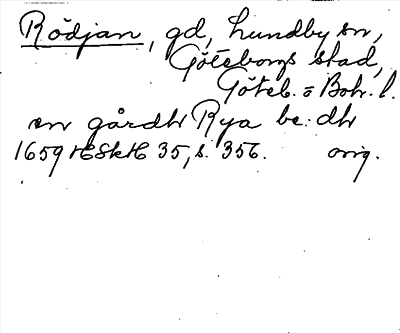 Rödjan, gd, Lundby sn,
Göteborgs stad,
Göteb. o Boh. l.
en gårdh Rya be: dh
1659 HSkH 35, s. 356. orig.